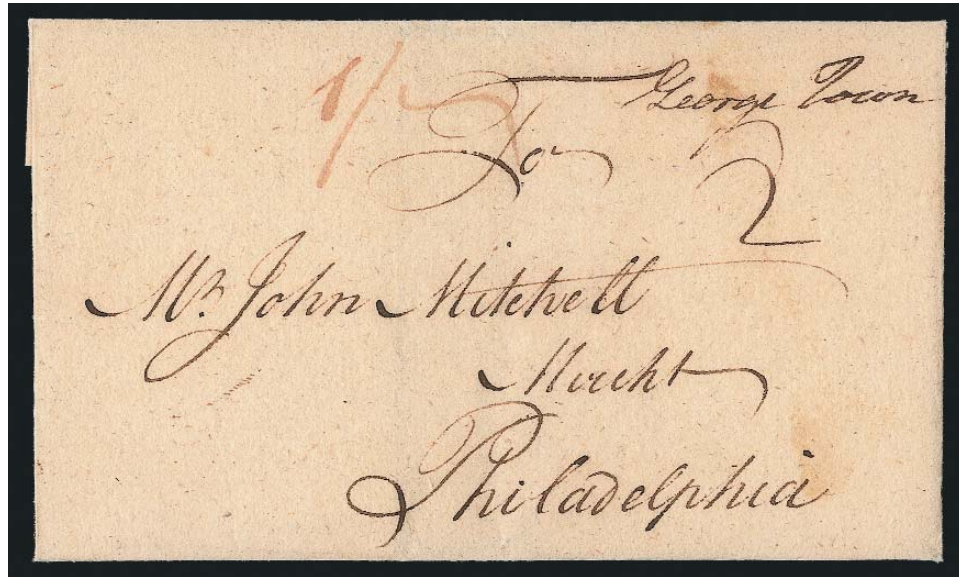 George Town
1/
To
2
Mr. John Mitchell
Mercht
Philadelphia